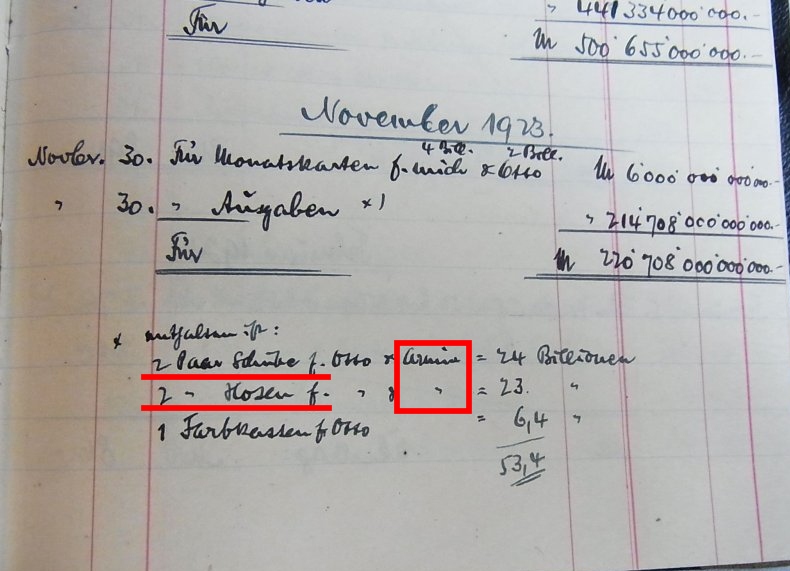 " 441 334 000 000.-
Für M 500 655 000 000.-
November 1923.
4 Bill. 2 Bill.
Novbr. 30. Für Monatskarten f. mich & Otto M 6 000 000 000 000.-
" 30. " Ausgaben *) " 214 708 000 000 000.-
Für M 220 708 000 000 000.-
* enthalten ist:
2 Paar Schuhe f. Otto & Armin = 24 Billionen
2 " Hosen f. " & " = 23. "
1 Farbkasten f. Otto = 6,4 "
53,4